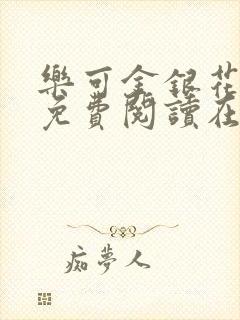 樂可金銀花
免費閱讀在
痴夢人